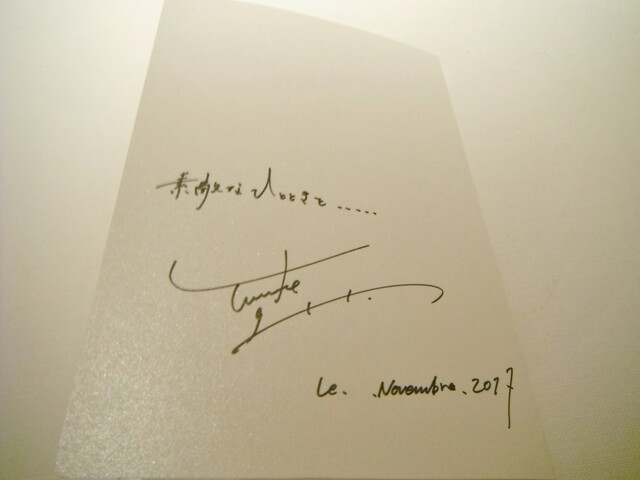 素敵なひとときを.....
Le. .Novembre.2017